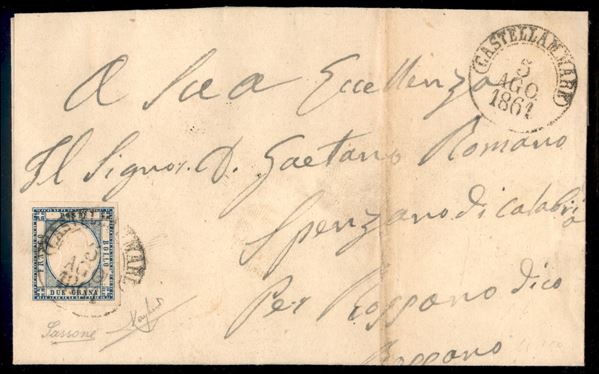 CASTELLAMMARE
5
AGO
1861
A Sua Eccellenza
Il Signor. D. Gaetano Romano
Spenzano di Calabria
Per Rossano dico
Rossano
FRANCO
BOLLO
DUE GRANA
Sassone